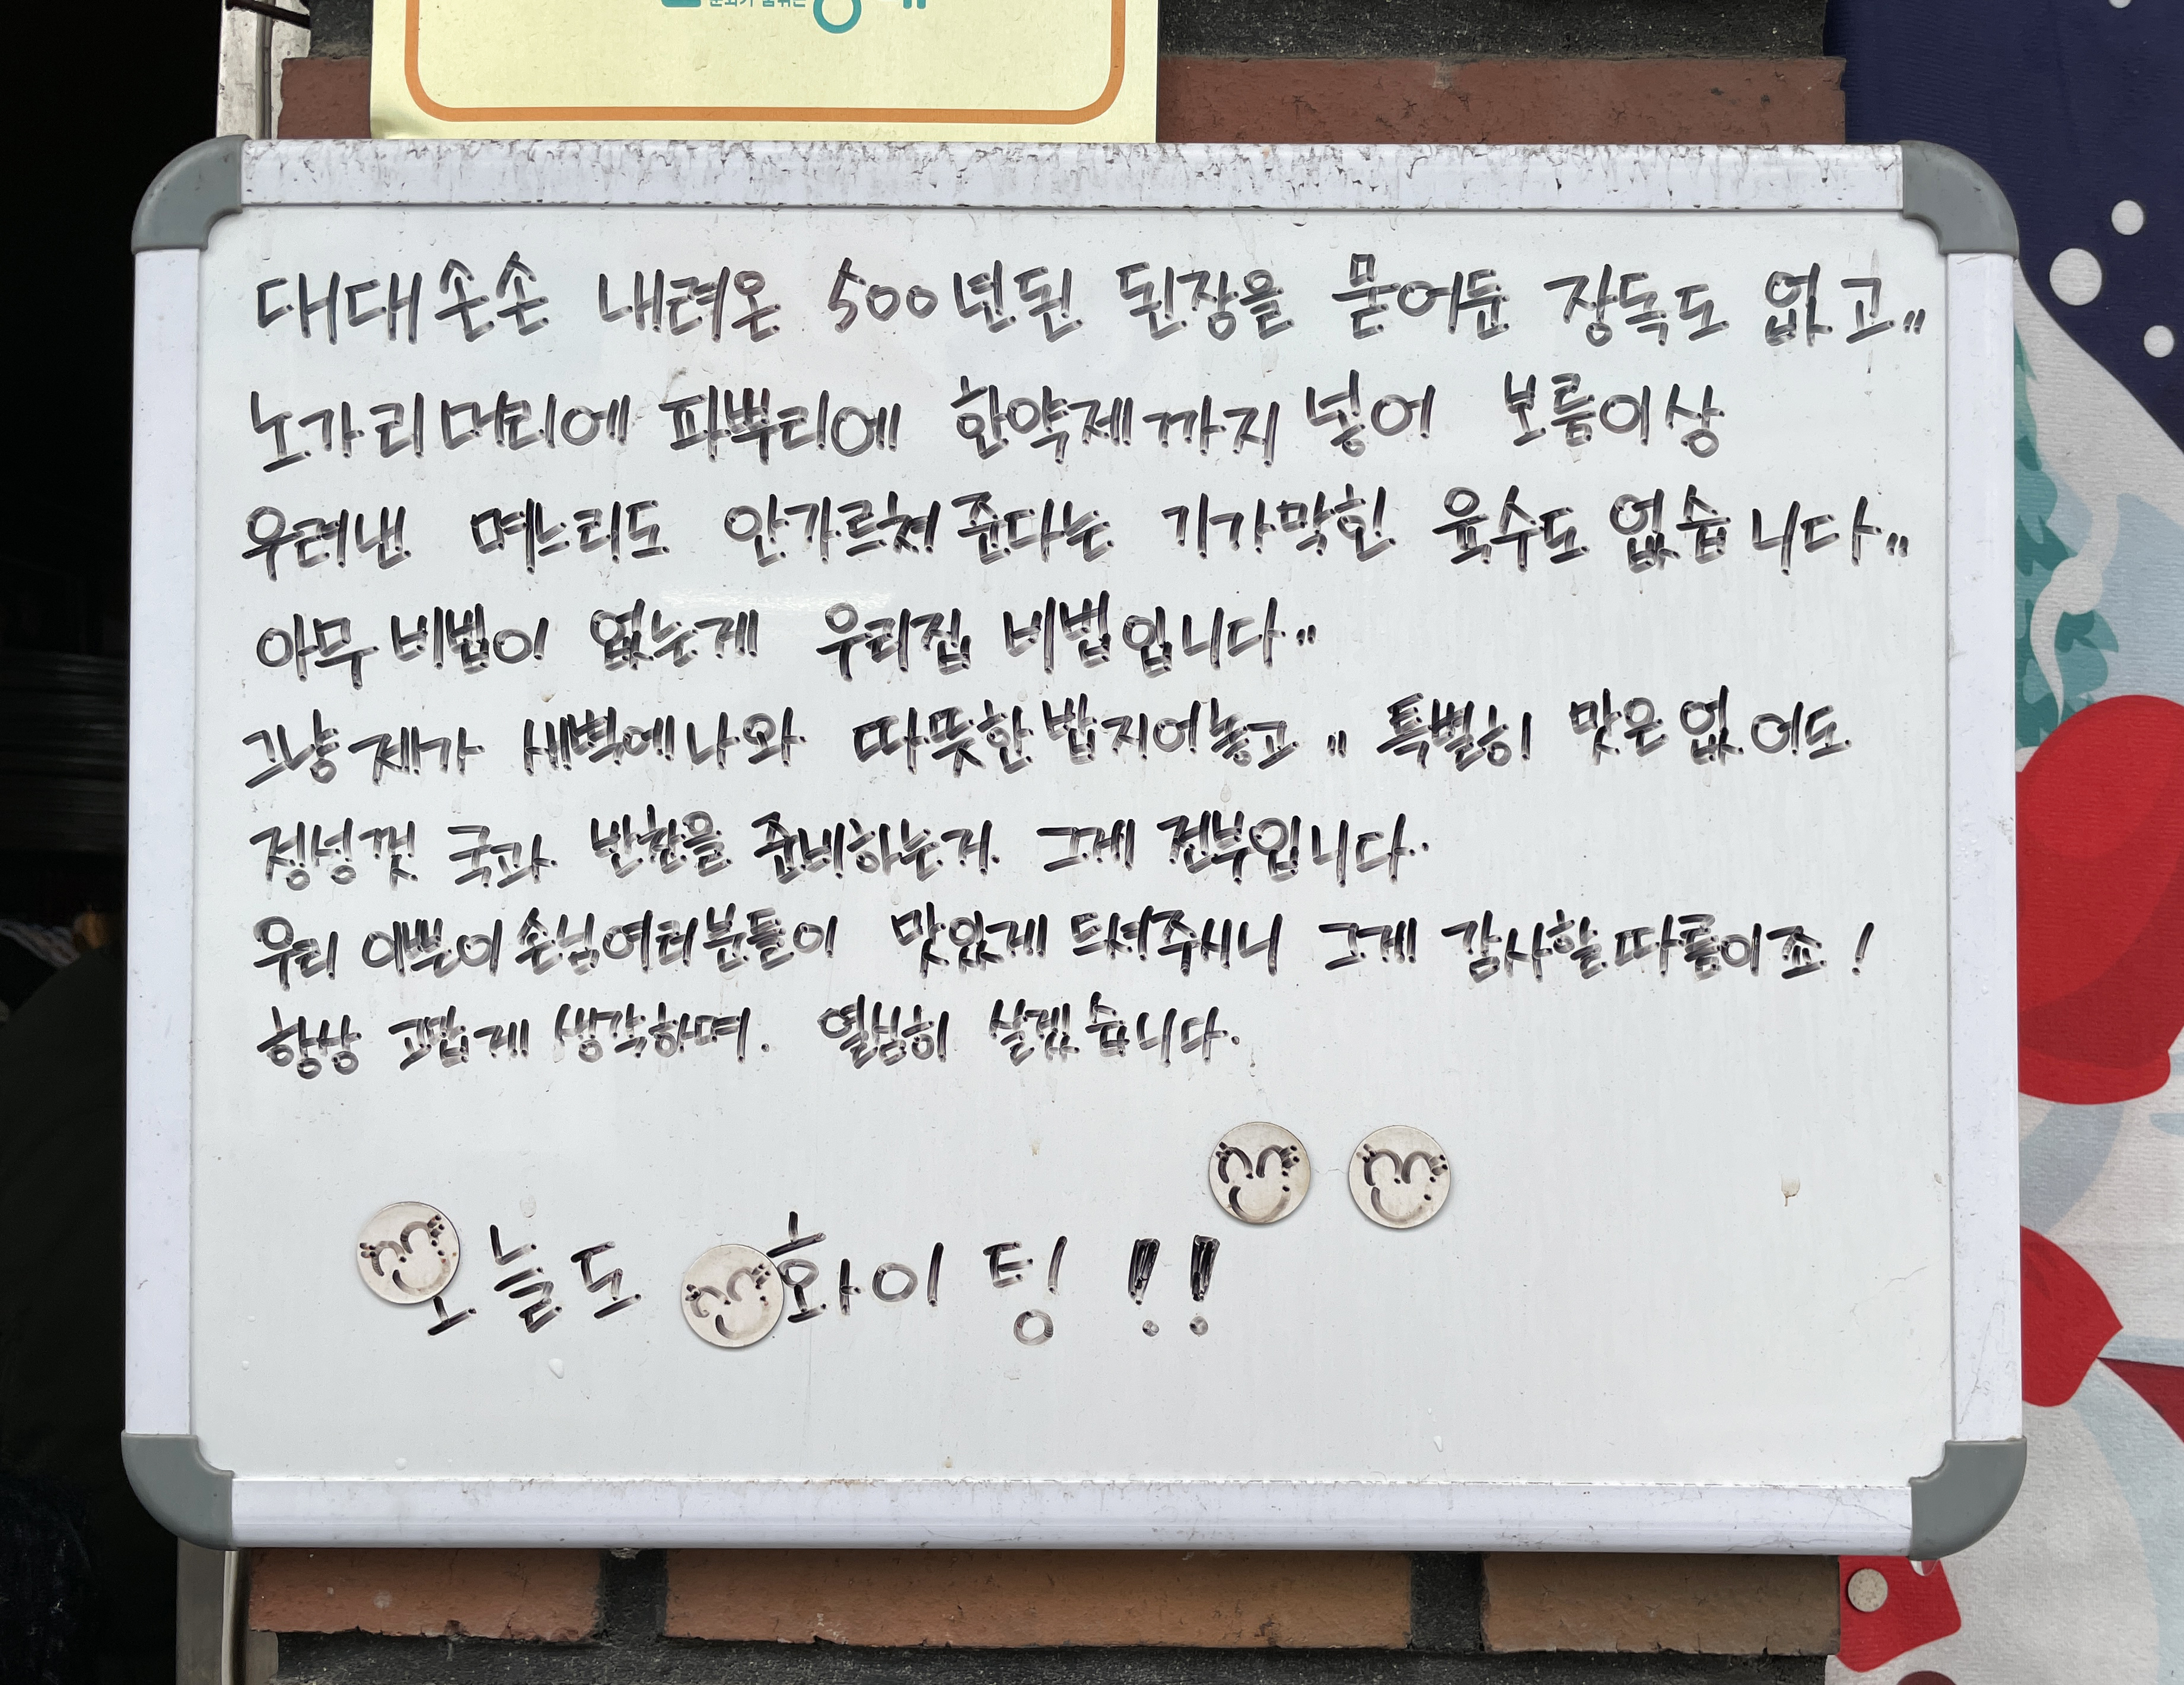 대대손손 내려온 500년된 된장을 묻어둔 장독도 없고..
노가리머리에 파뿌리에 한약제까지 넣어 보름이상
우려낸 며느리도 안가르쳐준다는 기가막힌 육수도 없습니다..
아무비법이 없는게 우리집 비법입니다..
그냥 제가 새벽에나와 따뜻한 밥지어놓고.. 특별히 맛은없어도
정성껏 국과 반찬을 준비하는거. 그게 전부입니다..
우리 이쁜이손님여러분들이 맛있게 드셔주시니 그게 감사할따름이죠!
항상 고맙게 생각하며. 열심히 살겠습니다.
오늘도 화이팅!!